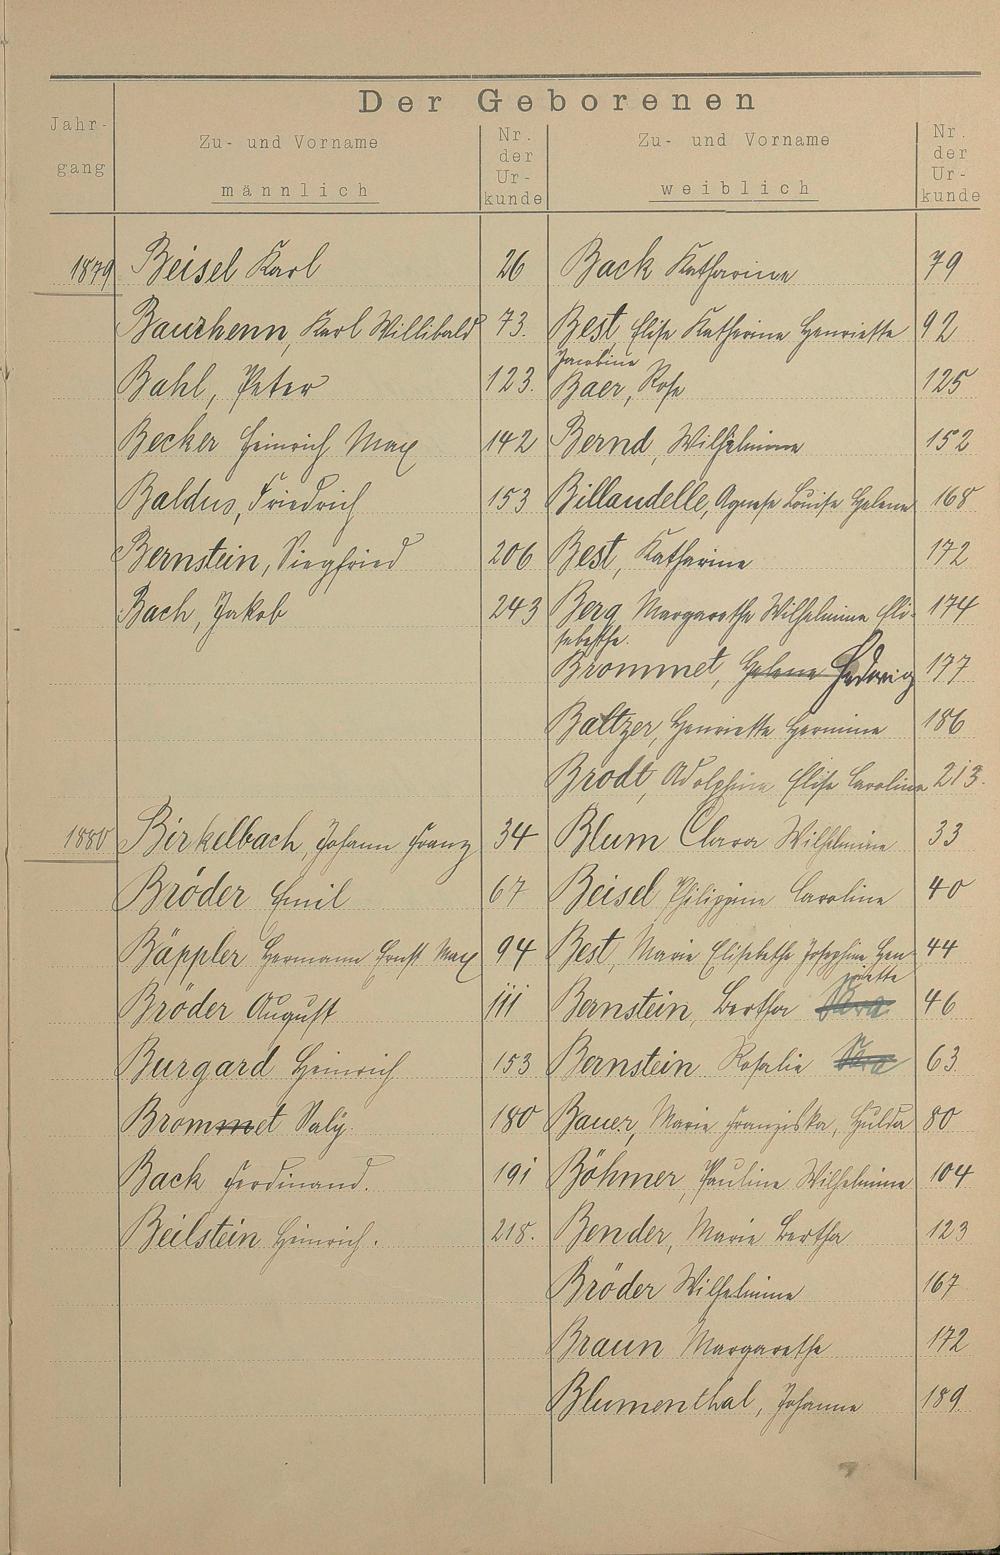 Der Geborenen
Jahr-
gang
Zu- und Vorname
männlich
Nr.
der
Ur-
kunde
Zu- und Vorname
weiblich
Nr.
der
Ur-
kunde
1879 Beisel Karl 26 Back Katharina 79
Bauzhenn, Karl Willibald 73. Best, Elise Katharina Henriette 92
Jacobine
Bahl, Peter 123. Baer, Rosa 125
Becker Heinrich Max 142 Bernd, Wilhelmine 152
Baldus, Friedrich 153 Billaudelle, Agnese Louise Helene 168
Bernstein, Siegfried 206 Best, Katharina 172
Bach, Jakob 243 Berg Margarethe Wilhelmine Eli- 174
sabethe.
Brommet, Helene Hedwig 177
Baltzer, Henriette Hermine 186
Brodt, Adolphine Elise Caroline 213.
1880 Birkelbach, Johann Franz 34 Blum Clara Wilhelmine 33
Bröder Emil 67 Beisel Philippine Caroline 40
Bäppler Hermann Ernst Max 94 Best, Marie Elisabethe Josephine Hen- 44
riette
Bröder August 111 Bernstein, Bertha Sara 46
Burgard Heinrich 153 Bernstein Rosalie Sara 63
Brommet Saly. 180 Bauer, Marie Franziska, Hulda 80
Back Ferdinand. 191 Böhmer, Pauline Wilhelmine 104
Beilstein Heinrich. 218. Bender, Marie Bertha 123
Bröder Wilhelmine 167
Braun Margarethe 172
Blumenthal, Johanna 189.